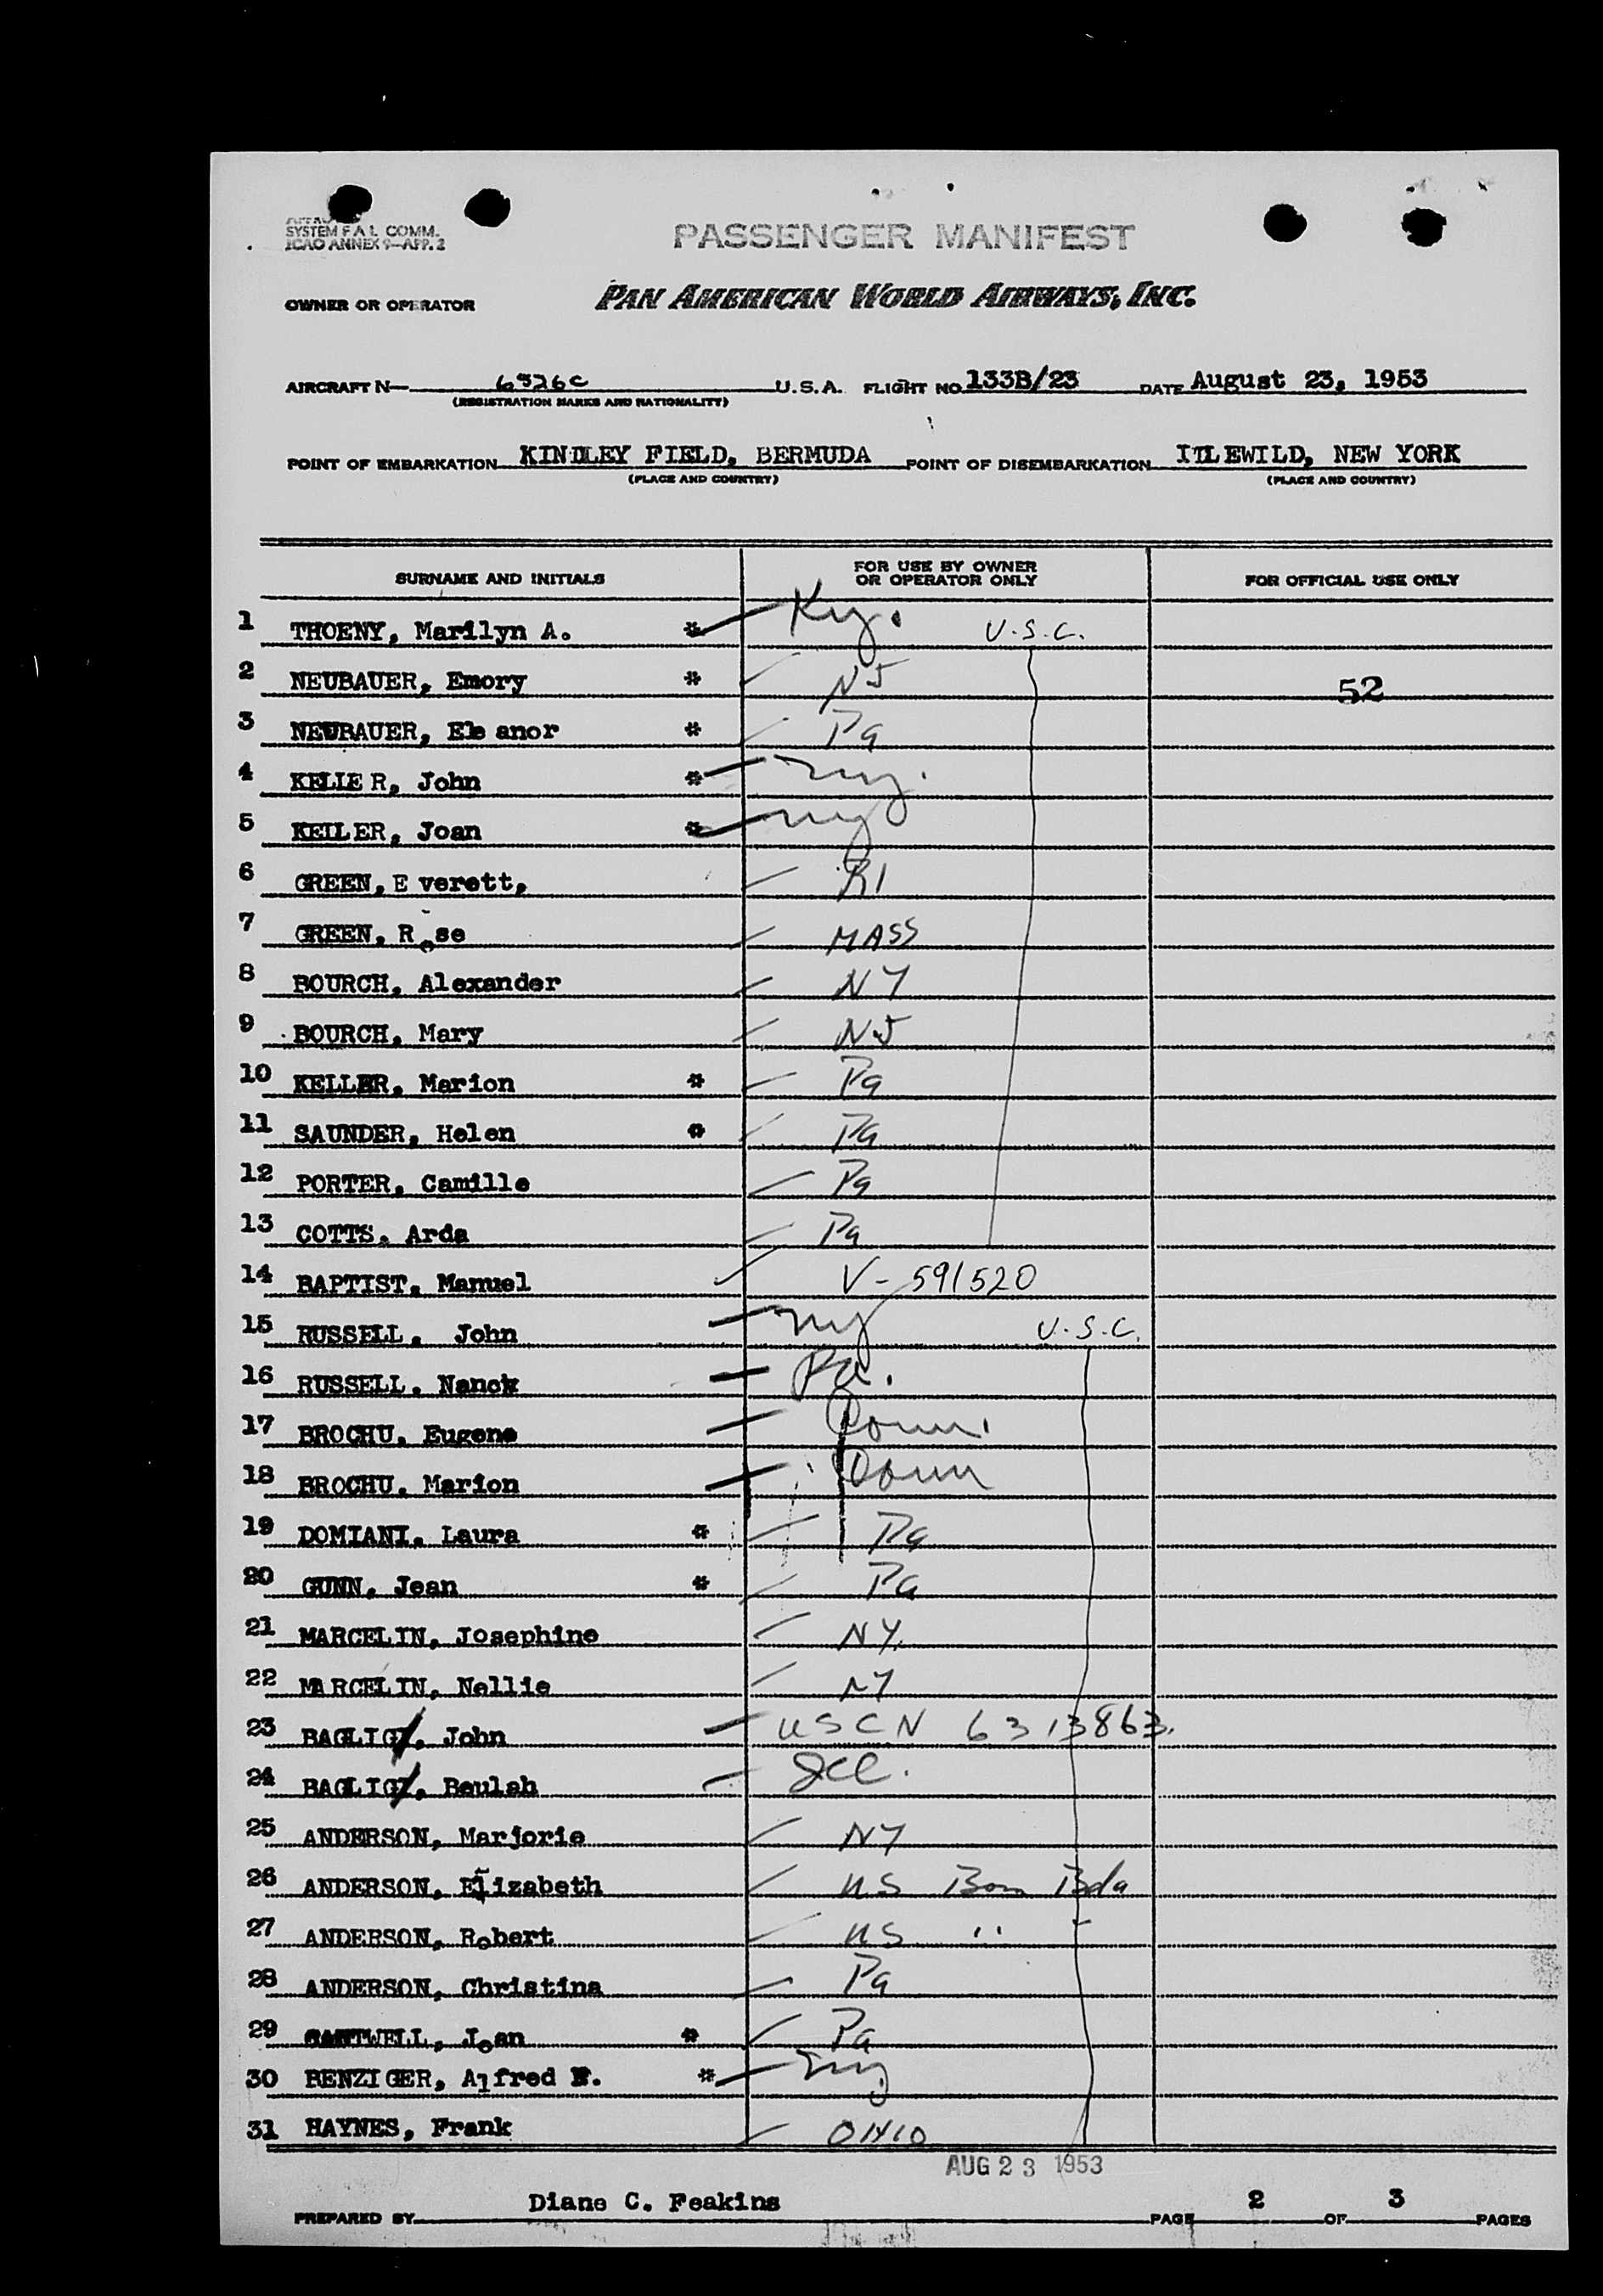 SYSTEM F A L COMM.
ICAO ANNEX 9—APP. 2
PASSENGER MANIFEST
OWNER OR OPERATOR PAN AMERICAN WORLD AIRWAYS, INC.
AIRCRAFT N— 6526C U.S.A. FLIGHT NO. 133B/23 DATE August 23, 1953
(REGISTRATION MARKS AND NATIONALITY)
POINT OF EMBARKATION KINDLEY FIELD, BERMUDA POINT OF DISEMBARKATION IDLEWILD, NEW YORK
(PLACE AND COUNTRY) (PLACE AND COUNTRY)
SURNAME AND INITIALS FOR USE BY OWNER OR OPERATOR ONLY FOR OFFICIAL USE ONLY
1 THOENY, Marilyn A. * Ky. U.S.C.
2 NEUBAUER, Emory * NJ 52
3 NEUBAUER, Eleanor * Pa
4 KELLER, John * ny.
5 KELLER, Joan * ny
6 GREEN, Everett, RI
7 GREEN, Rose MASS
8 BOURCH, Alexander NY
9 BOURCH, Mary NJ
10 KELLER, Marion * Pa
11 SAUNDER, Helen * Pa
12 PORTER, Camille Pa
13 COTTS. Arda Pa
14 BAPTIST. Manuel V-591520
15 RUSSELL. John ny U.S.C.
16 RUSSELL. Nanck Pa.
17 BROCHU. Eugene Conn.
18 BROCHU. Marion Conn
19 DOMIANI. Laura * Pa
20 GUNN. Jean * Pa
21 MARCELIN, Josephine NY.
22 MARCELIN, Nellie NY
23 BAGLIGI, John USCN 6313863.
24 BAGLIGI, Beulah Ill.
25 ANDERSON, Marjorie NY
26 ANDERSON, Elizabeth US Born Bda
27 ANDERSON, Robert US " -
28 ANDERSON, Christina Pa
29 CANTWELL, Joan * Pa
30 BENZIGER, Alfred F. * ny
31 HAYNES, Frank OHIO
AUG 23 1953
PREPARED BY Diane C. Feakins PAGE 2 OF 3 PAGES